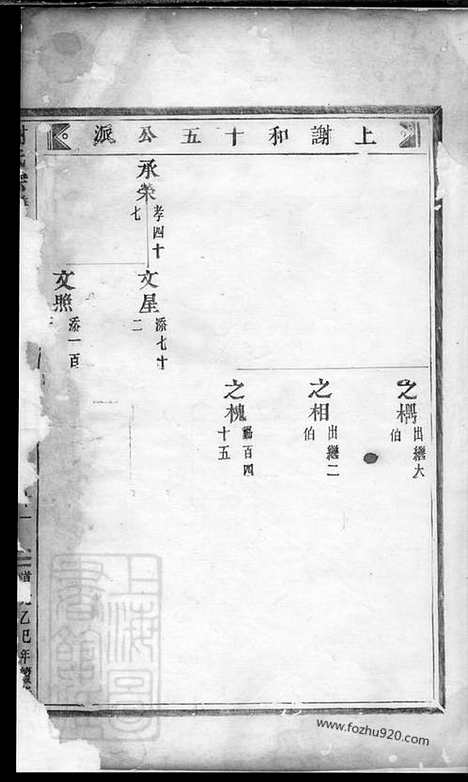 上謝和十五公派
之樗 出繼大伯
之相 出繼二伯
之槐 福百四十五
承榮 孝四十七
文星 添七十二
文照 添一百
乙巳年
上海圖書館藏
www.fozhu920.com